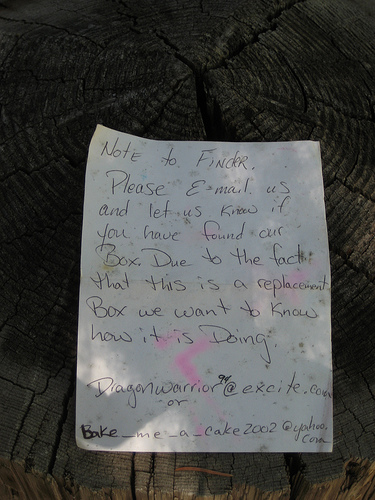 Note to Finder.
Please E-mail us
and let us know if
you have found our
Box. Due to the fact
that this is a replacement
Box we want to know
how it is Doing.
Dragonwarrior94@excite.com
or
Bake_me_a_cake2002@yahoo.
com